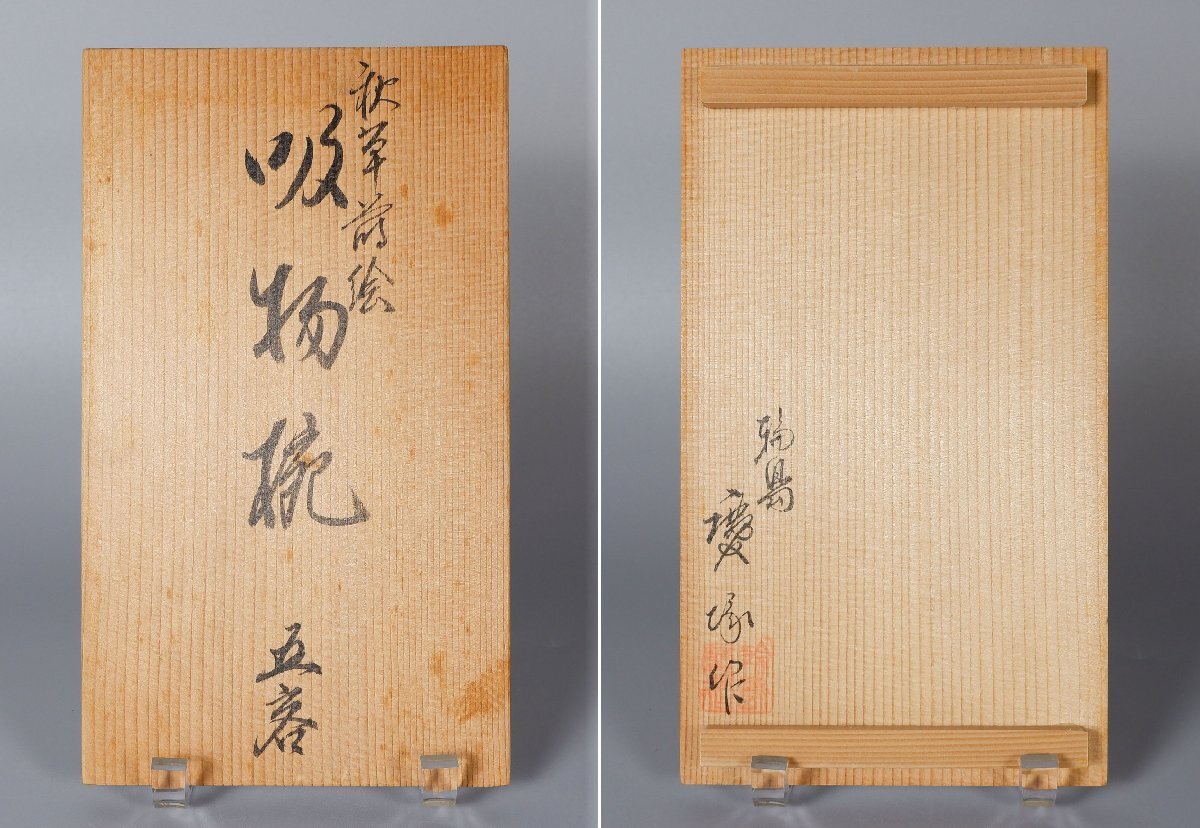 秋草蒔絵
吸物椀 五客
輪島
慶塚作